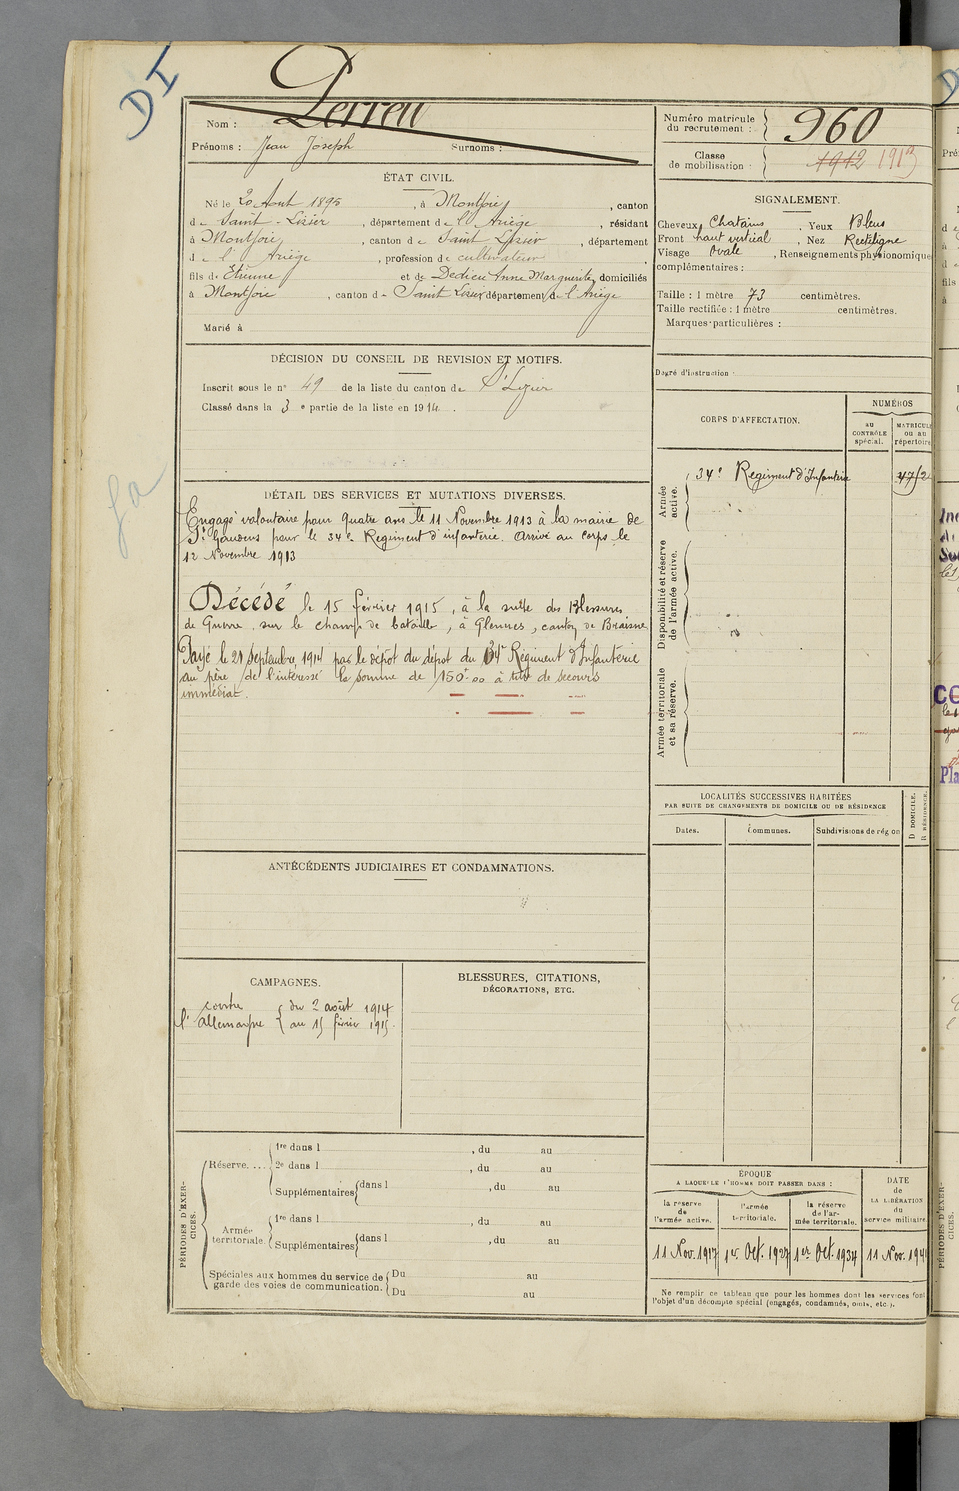 DI
Nom :
Prénoms : Jean Joseph Surnoms :
Numéro matricule
du recrutement : 960
Classe
de mobilisation : 1912 1913
ÉTAT CIVIL.
Né le 20 Août 1895, à Montjoie, canton
de Saint-Lizier, département de l'Ariège, résidant
à Montjoie, canton de Saint Lizier, département
de l'Ariège, profession de cultivateur
fils de Etienne et de Dedieu Anne Marguerite, domiciliés
à Montjoie, canton de Saint Lizier département de l'Ariège
Marié à
SIGNALEMENT.
Cheveux Chatains, Yeux Bleus
Front haut vertical, Nez Rectiligne
Visage Ovale, Renseignements physionomiques
complémentaires :
Taille : 1 mètre 73 centimètres.
Taille rectifiée : 1 mètre centimètres.
Marques particulières :
Degré d'instruction :
DÉCISION DU CONSEIL DE REVISION ET MOTIFS.
Inscrit sous le n° 49 de la liste du canton de St Lizier
Classé dans la 3e partie de la liste en 1914.
DÉTAIL DES SERVICES ET MUTATIONS DIVERSES.
Engagé volontaire pour quatre ans le 11 Novembre 1913 à la mairie de
St Gaudens pour le 34e Regiment d'infanterie. Arrivé au corps le
12 Novembre 1913
Décédé le 15 février 1915, à la suite des Blessures
de Guerre, sur le champ de bataille, à Glennes, canton de Braisne
Payé le 21 Septembre 1914 par le dépôt du dépot du 34e Régiment d'Infanterie
au père de l'interessé la somme de 150f00 à titre de secours
immédiat.
CORPS D'AFFECTATION.
NUMÉROS
au
CONTRÔLE
spécial.
MATRICULE
ou au
répertoire
Armée
active.
34e Regiment d'Infanterie 4712
Disponibilité et réserve
de l'armée active.
Armée territoriale
et sa réserve.
LOCALITÉS SUCCESSIVES HABITÉES
PAR SUITE DE CHANGEMENTS DE DOMICILE OU DE RÉSIDENCE
Dates.
Communes.
Subdivisions de région
D. DOMICILE.
R. RÉSIDENCE.
ANTÉCÉDENTS JUDICIAIRES ET CONDAMNATIONS.
CAMPAGNES.
contre du 2 août 1914
l'Allemagne au 15 février 1915.
BLESSURES, CITATIONS,
DÉCORATIONS, ETC.
PÉRIODES D'EXER-
CICES.
Réserve....
1re dans l , du au
2e dans l , du au
Supplémentaires dans l , du au
Armée
territoriale.
1re dans l , du au
Supplémentaires dans l , du au
Spéciales aux hommes du service de
garde des voies de communication.
Du au
Du au
ÉPOQUE
A LAQUELLE L'HOMME DOIT PASSER DANS :
la réserve
de
l'armée active.
l'armée
territoriale.
la réserve
de l'ar-
mée territoriale.
DATE
de
LA LIBÉRATION
du
service militaire.
11 Nov. 1917 1er Oct. 1927 1er Oct. 1934 11 Nov. 1941
Ne remplir ce tableau que pour les hommes dont les services font
l'objet d'un décompte spécial (engagés, condamnés, omis, etc.).